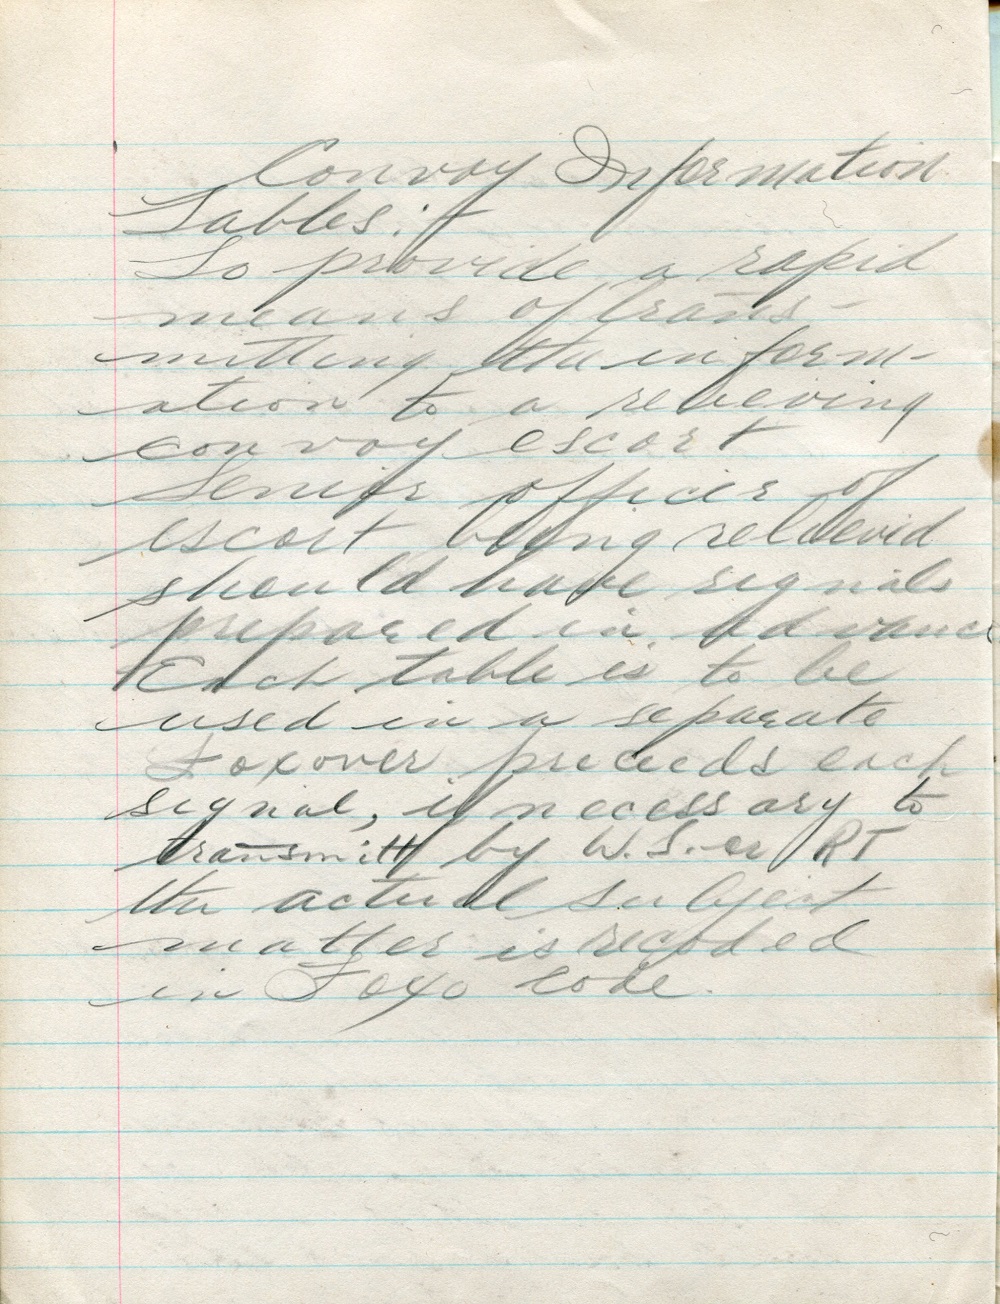 Convoy Information
Tables:-
To provide a rapid
means of trans-
mitting the inform-
ation to a relieving
convoy escort
Senior officer of
escort being relieved
should have signals
prepared in advance
Each table is to be
used in a separate
Foxover preceeds each
signal, if necessary to
transmitt by W.T. or RT
the actual subject
matter is recoded
in Foxo code.